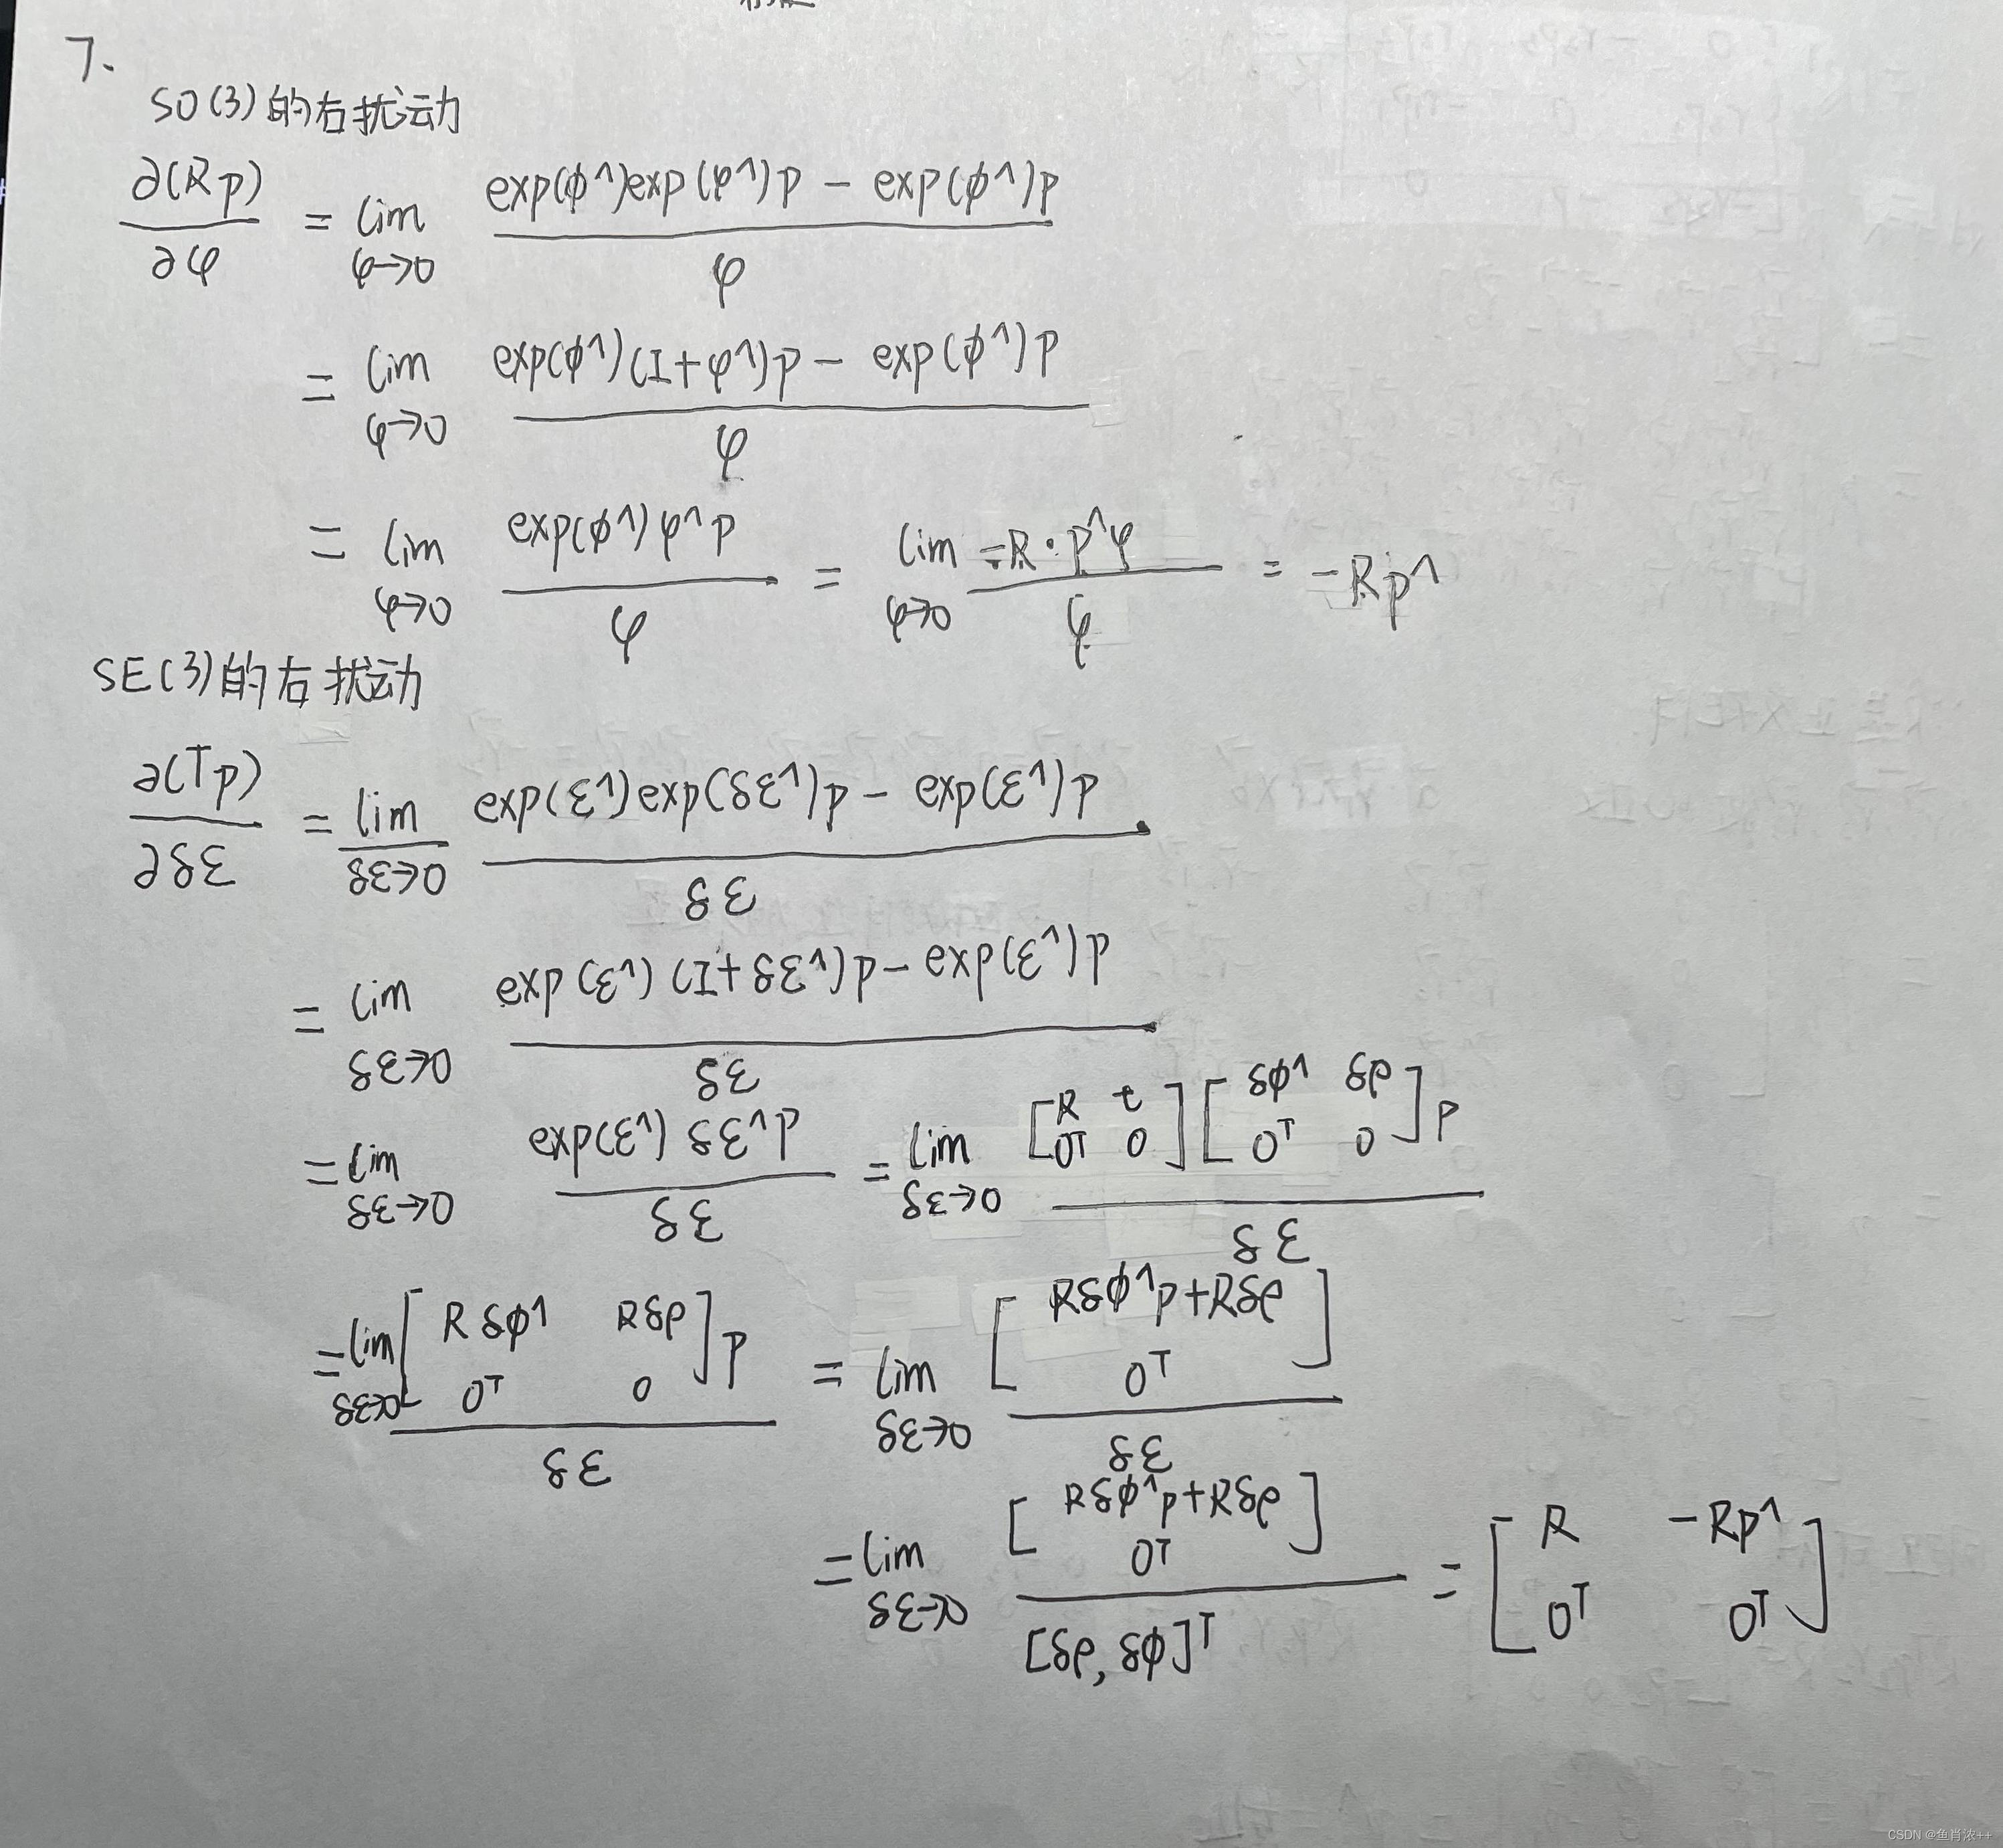 7.
SO(3)的右扰动
∂(Rp)/∂φ = lim φ→0 (exp(ϕ^)exp(φ^)p - exp(ϕ^)p)/φ
= lim φ→0 (exp(ϕ^)(I+φ^)p - exp(ϕ^)p)/φ
= lim φ→0 (exp(ϕ^)φ^p)/φ = lim φ→0 (-R·p^φ)/φ = -Rp^
SE(3)的右扰动
∂(Tp)/∂δε = lim δε→0 (exp(ε^)exp(δε^)p - exp(ε^)p)/δε
= lim δε→0 (exp(ε^)(I+δε^)p - exp(ε^)p)/δε
= lim δε→0 (exp(ε^)δε^p)/δε = lim δε→0 ([R t; 0ᵀ 0][δϕ^ δρ; 0ᵀ 0]p)/δε
= lim δε→0 ([Rδϕ^ Rδρ; 0ᵀ 0]p)/δε = lim δε→0 [Rδϕ^p+Rδρ; 0ᵀ]/δε
= lim δε→0 [Rδϕ^p+Rδρ; 0ᵀ]/[δρ, δϕ]ᵀ = [R -Rp^; 0ᵀ 0ᵀ]
CSDN @鱼肖浓++